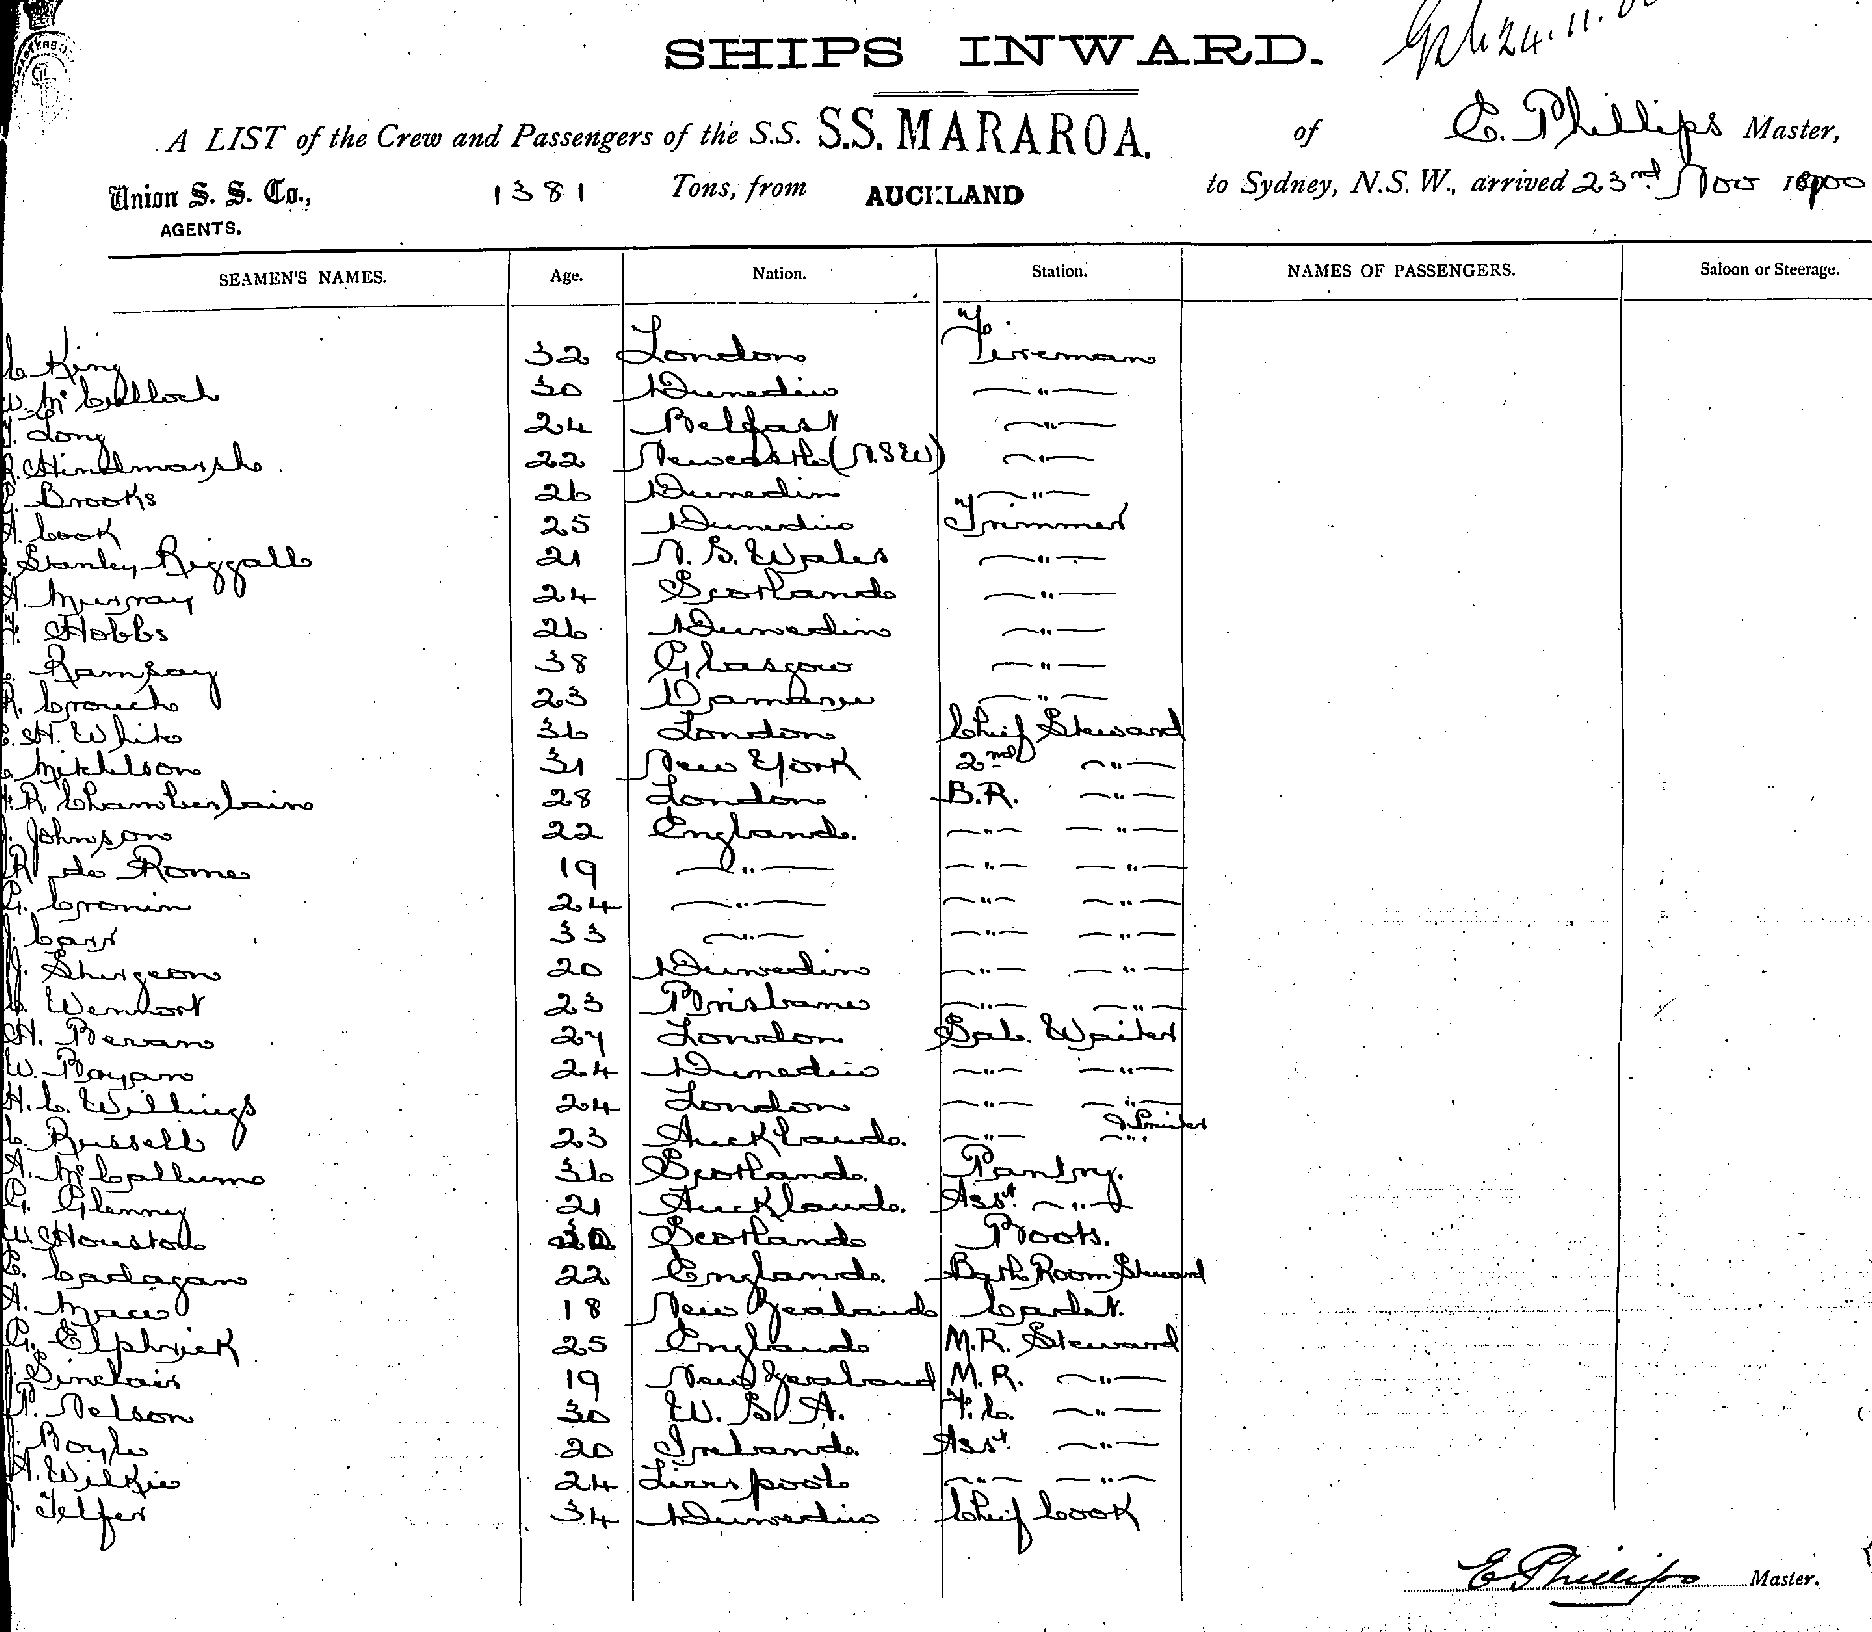 24.11.00
SHIPS INWARD.
A LIST of the Crew and Passengers of the S.S. S.S. MARAROA. of E. Phillips Master,
Union S. S. Co., 1381 Tons, from AUCKLAND to Sydney, N.S.W., arrived 23rd Nov 1900
AGENTS.
SEAMEN'S NAMES. Age. Nation. Station. NAMES OF PASSENGERS. Saloon or Steerage.
C King 32 London Fireman
W. McCulloch 30 Dunedin —"—
Long 24 Belfast —"—
Hindmarsh 22 Newcastle (N.S.W) —"—
Brooks 26 Dunedin —"—
A. Cook 25 Dunedin Trimmer
Stanley Riggall 21 N. S. Wales —"—
A. Murray 24 Scotland —"—
Hobbs 26 Dunedin —"—
Ramsay 38 Glasgow —"—
R. Crouch 23 —"—
E. H. White 36 London Chief Steward
Mikhlson 31 New York 2nd —"—
R. Chamberlain 28 London B.R. —"—
J. Johnson 22 England. —"— —"—
R de Rome 19 —"— —"— —"—
G. Cronin 24 —"— —"— —"—
Carr 33 —"— —"— —"—
J. Sturgeon 20 Dunedin —"— —"—
23 Brisbane —"— —"—
H. Bevan 27 London Sal. Waiter
W. Bayan 24 Dunedin —"— —"—
H. C. Willings 24 London —"— —"—
C. Russell 23 Auckland. —"— —"—
A. McCallum 36 Scotland. Pantry.
G. Glenny 21 Auckland. Asst. —"—
W. Houston Scotland Boots.
E. Cadagan 22 England. Bath Room Steward
A. Mace 18 New Zealand Cadet.
G. Elphick 25 England M.R. Steward
Sinclair 19 New Zealand M.R. —"—
P. Nelson 30 U. S. A. F.C. —"—
Boyle 20 Ireland. Asst. —"—
A. Wilkie 24 Liverpool —"— —"—
J. Telfer 34 Dunedin Chief Cook
E Phillips Master.